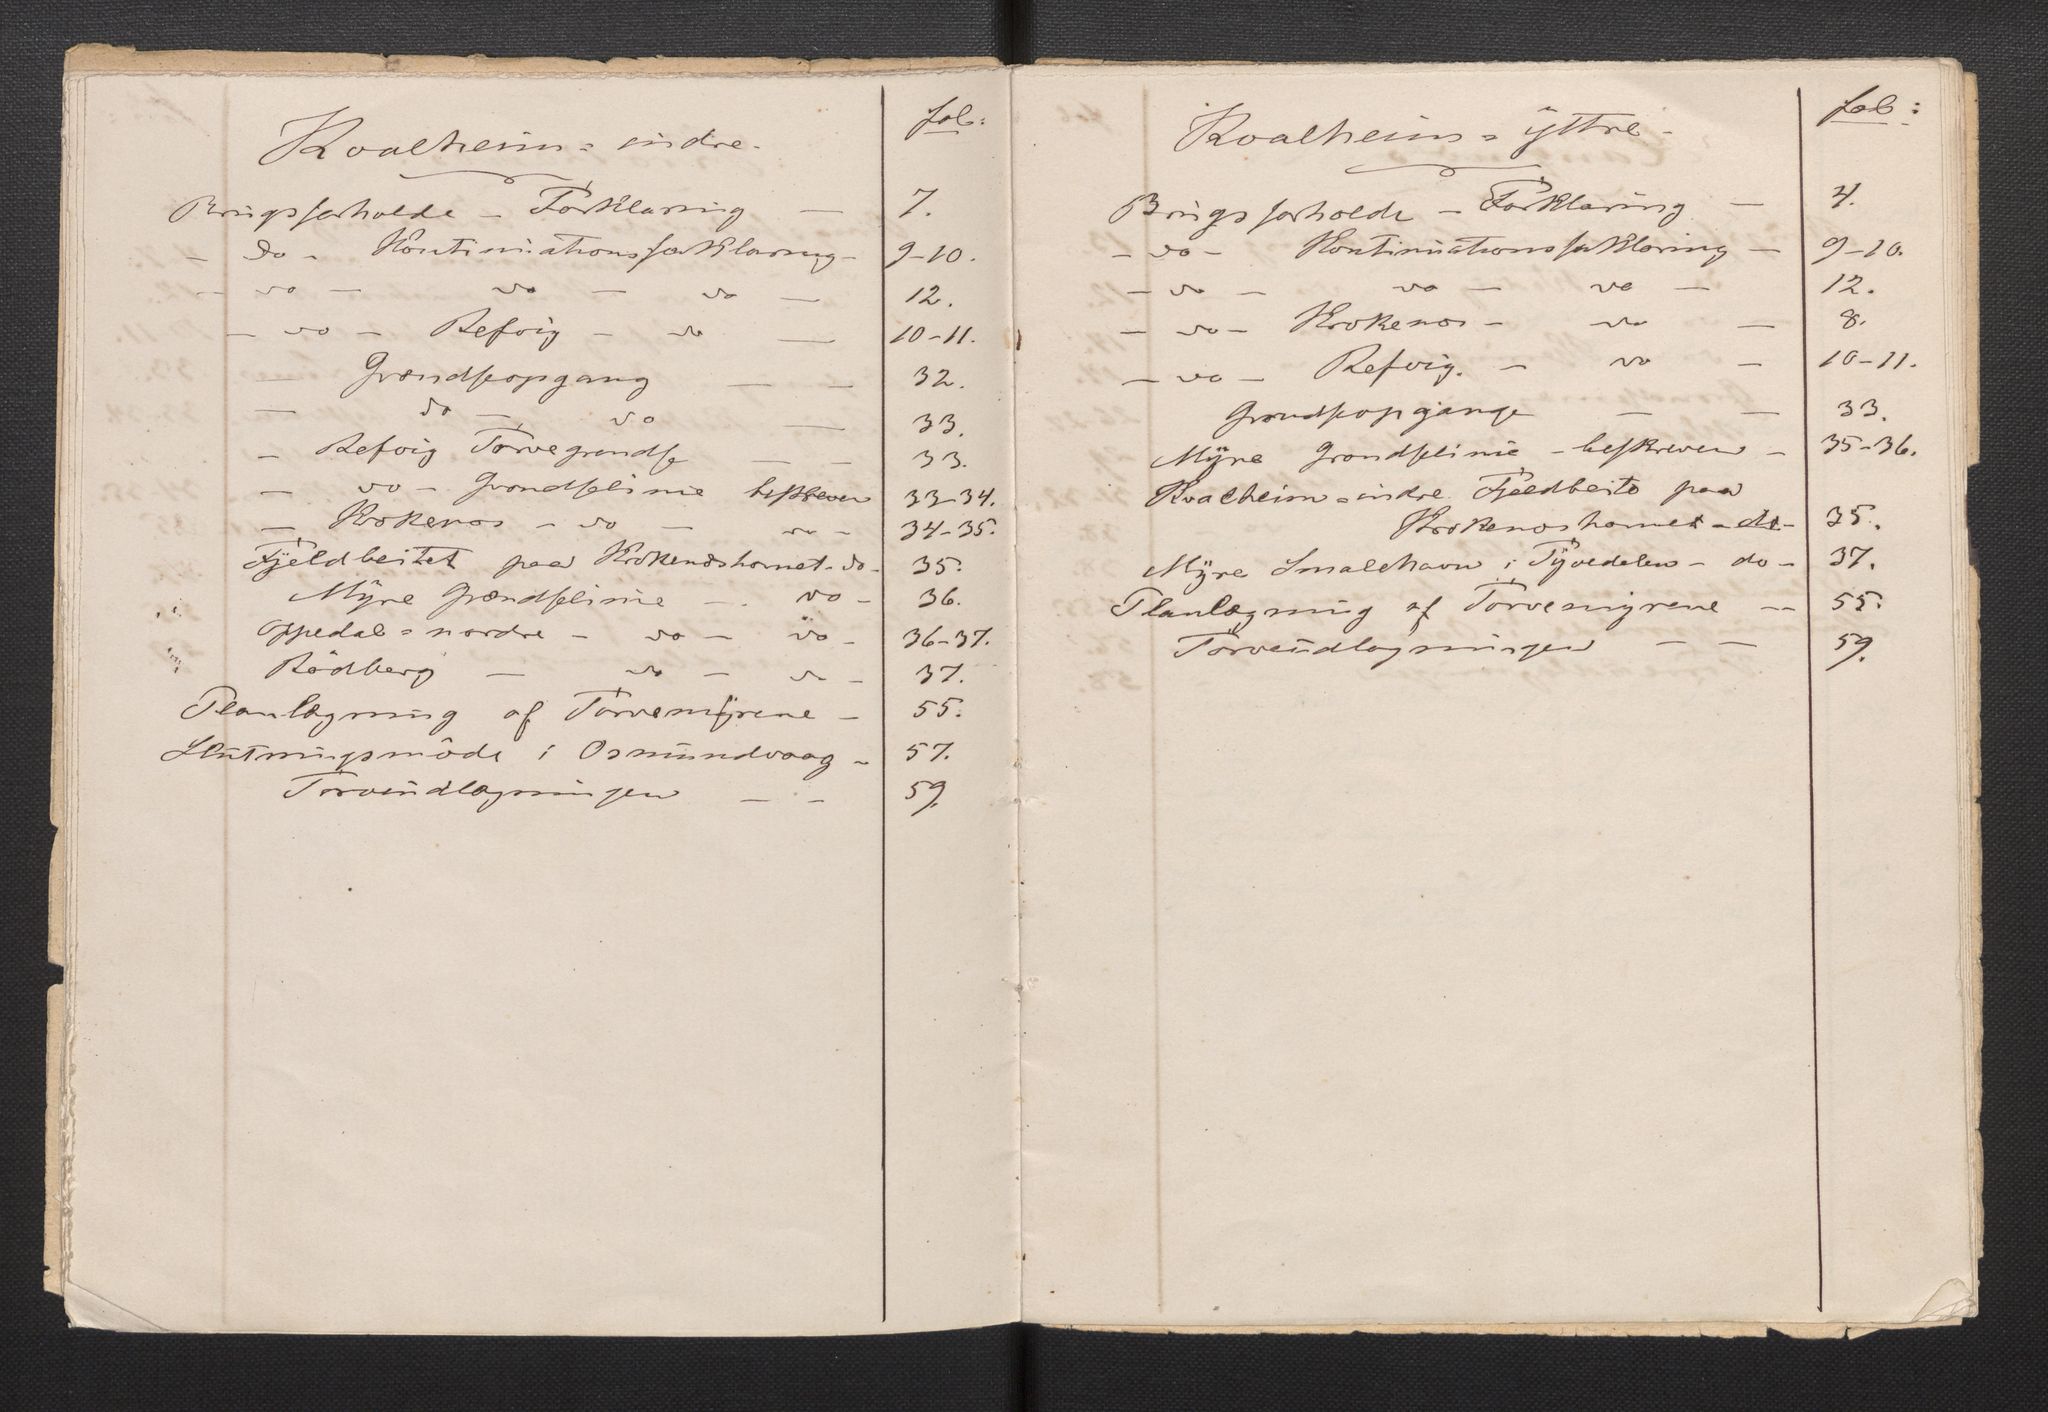 fol:
Kvalheim = indre.
Brugsforholde – Forklaring — 7.
– do – Kontinuationsforklaring – 9–10.
– do — do — do — 12.
– do – Refvig – do — 10–11.
— Grændseopgang — — 32.
— do – do — 33.
– Refvig Torvegrændse — – 33.
— do – Grændselinie beskreven 33–34.
— Krokenos – do — do – 34–35.
Fjeldbeitet paa Krokenoshornet – do – 35.
Myre Grændselinie — do – 36.
Oppedal = nordre – do – do – 36–37.
Rödberg — do – do – 37.
Planlægning af Torvemyrene – 55.
Slutningsmöde i Osmundvaag – 57.
Torvindlægningen — – 59.
fol:
Kvalheim = yttre –
Brugsforholde – Forklaring – 4.
– do – Kontinuationsforklaring – 9–10.
– do — do — do — 12.
– do – Krokenos – do — 8.
– do – Refvig. – do – 10–11.
Grændseopgange — — 33.
Myre Grændselinie – beskreven – 35–36.
Kvalheim = indre Fjeldbeite paa
Krokenoshornet – do – 35.
Myre Smalehavn i Tyvedalen – do – 37.
Planlægning af Torvemyrene –– 55.
Torvindlægningen — – 59.